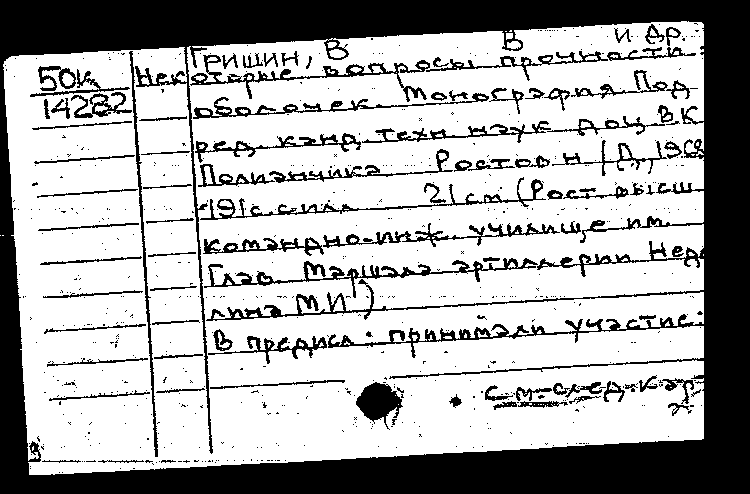 Гришин, В В и др.
50к Некоторые вопросы прочности
14282 оболочек. Монография Под
ред. канд. техн. наук доц. В К
Полианчика Ростов н/Д,
191 с. с илл 21 см (Рост. высш
командно-инж. училище им.
Глав. Маршала артиллерии Неде
лина М.И).
В предисл: принимали участие:
см. след. кар